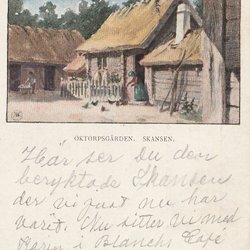 OKTORPSGÅRDEN. SKANSEN.
Här ser Du den
beryktade Skansen
der vi just nu har
varit. Nu sitter vi med
Karin i Blanchs Café